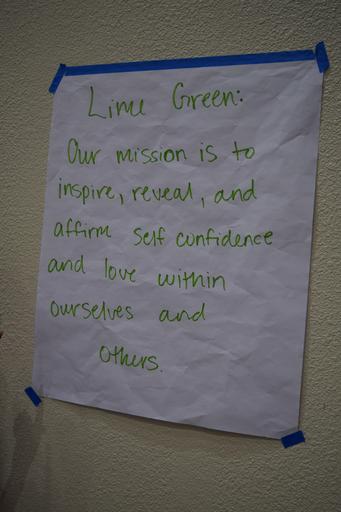 Lime Green:
Our mission is to
inspire, reveal, and
affirm self confidence
and love within
ourselves and
others.